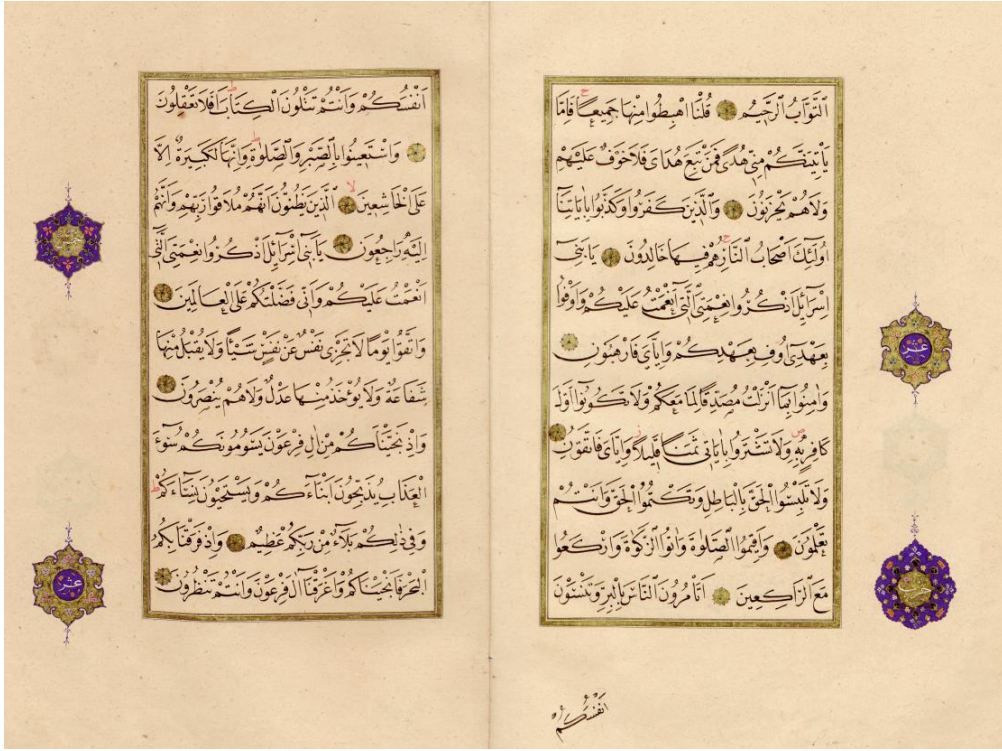 اَلتَّوَّابُ الرَّحٖيمُ قُلْنَا اهْبِطُوا مِنْهَا جَمٖيعًا ج فَاِمَّا
يَأْتِيَنَّكُمْ مِنّٖى هُدًى فَمَنْ تَبِعَ هُدَاىَ فَلَا خَوْفٌ عَلَيْهِمْ
وَلَا هُمْ يَحْزَنُونَ وَالَّذٖينَ كَفَرُوا وَكَذَّبُوا بِاٰيَاتِنَٓا
اُولٰٓئِكَ اَصْحَابُ النَّارِ ج هُمْ فٖيهَا خَالِدُونَ يَا بَنٖٓى
اِسْرَٓائٖلَ اذْكُرُوا نِعْمَتِىَ الَّتٖٓى اَنْعَمْتُ عَلَيْكُمْ وَاَوْفُوا
بِعَهْدٖٓى اُوفِ بِعَهْدِكُمْ وَاِيَّاىَ فَارْهَبُونِ
عشر
وَاٰمِنُوا بِمَٓا اَنْزَلْتُ مُصَدِّقًا لِمَا مَعَكُمْ وَلَا تَكُونُٓوا اَوَّلَ
كَافِرٍ بِهٖ وَلَا تَشْتَرُوا بِاٰيَاتٖى ثَمَنًا ص قَلٖيلًا ز وَاِيَّاىَ فَاتَّقُونِ
وَلَا تَلْبِسُوا الْحَقَّ بِالْبَاطِلِ وَتَكْتُمُوا الْحَقَّ وَاَنْتُمْ
تَعْلَمُونَ وَاَقٖيمُوا الصَّلٰوةَ وَاٰتُوا الزَّكٰوةَ وَارْكَعُوا
مَعَ الرَّاكِعٖينَ اَتَأْمُرُونَ النَّاسَ بِالْبِرِّ وَتَنْسَوْنَ
حزب
اَنْفُسَكُمْ
اَنْفُسَكُمْ وَاَنْتُمْ تَتْلُونَ الْكِتَابَ ط اَفَلَا تَعْقِلُونَ
وَاسْتَعٖينُوا بِالصَّبْرِ وَالصَّلٰوةِ ط وَاِنَّهَا لَكَبٖيرَةٌ اِلَّا
عَلَى الْخَاشِعٖينَ لا اَلَّذٖينَ يَظُنُّونَ اَنَّهُمْ مُلَاقُوا رَبِّهِمْ وَاَنَّهُمْ
خمس
اِلَيْهِ رَاجِعُونَ يَا بَنٖٓى اِسْرَٓائٖلَ اذْكُرُوا نِعْمَتِىَ الَّتٖٓى
اَنْعَمْتُ عَلَيْكُمْ وَاَنّٖى فَضَّلْتُكُمْ عَلَى الْعَالَمٖينَ
وَاتَّقُوا يَوْمًا لَا تَجْزٖى نَفْسٌ عَنْ نَفْسٍ شَيْئًا وَلَا يُقْبَلُ مِنْهَا
شَفَاعَةٌ وَلَا يُؤْخَذُ مِنْهَا عَدْلٌ وَلَا هُمْ يُنْصَرُونَ
وَاِذْ نَجَّيْنَاكُمْ مِنْ اٰلِ فِرْعَوْنَ يَسُومُونَكُمْ سُٓوءَ
الْعَذَابِ يُذَبِّحُونَ اَبْنَٓاءَكُمْ وَيَسْتَحْيُونَ نِسَٓاءَكُمْ ط
وَفٖى ذٰلِكُمْ بَلَٓاءٌ مِنْ رَبِّكُمْ عَظٖيمٌ وَاِذْ فَرَقْنَا بِكُمُ
الْبَحْرَ فَاَنْجَيْنَاكُمْ وَاَغْرَقْنَٓا اٰلَ فِرْعَوْنَ وَاَنْتُمْ تَنْظُرُونَ
عشر